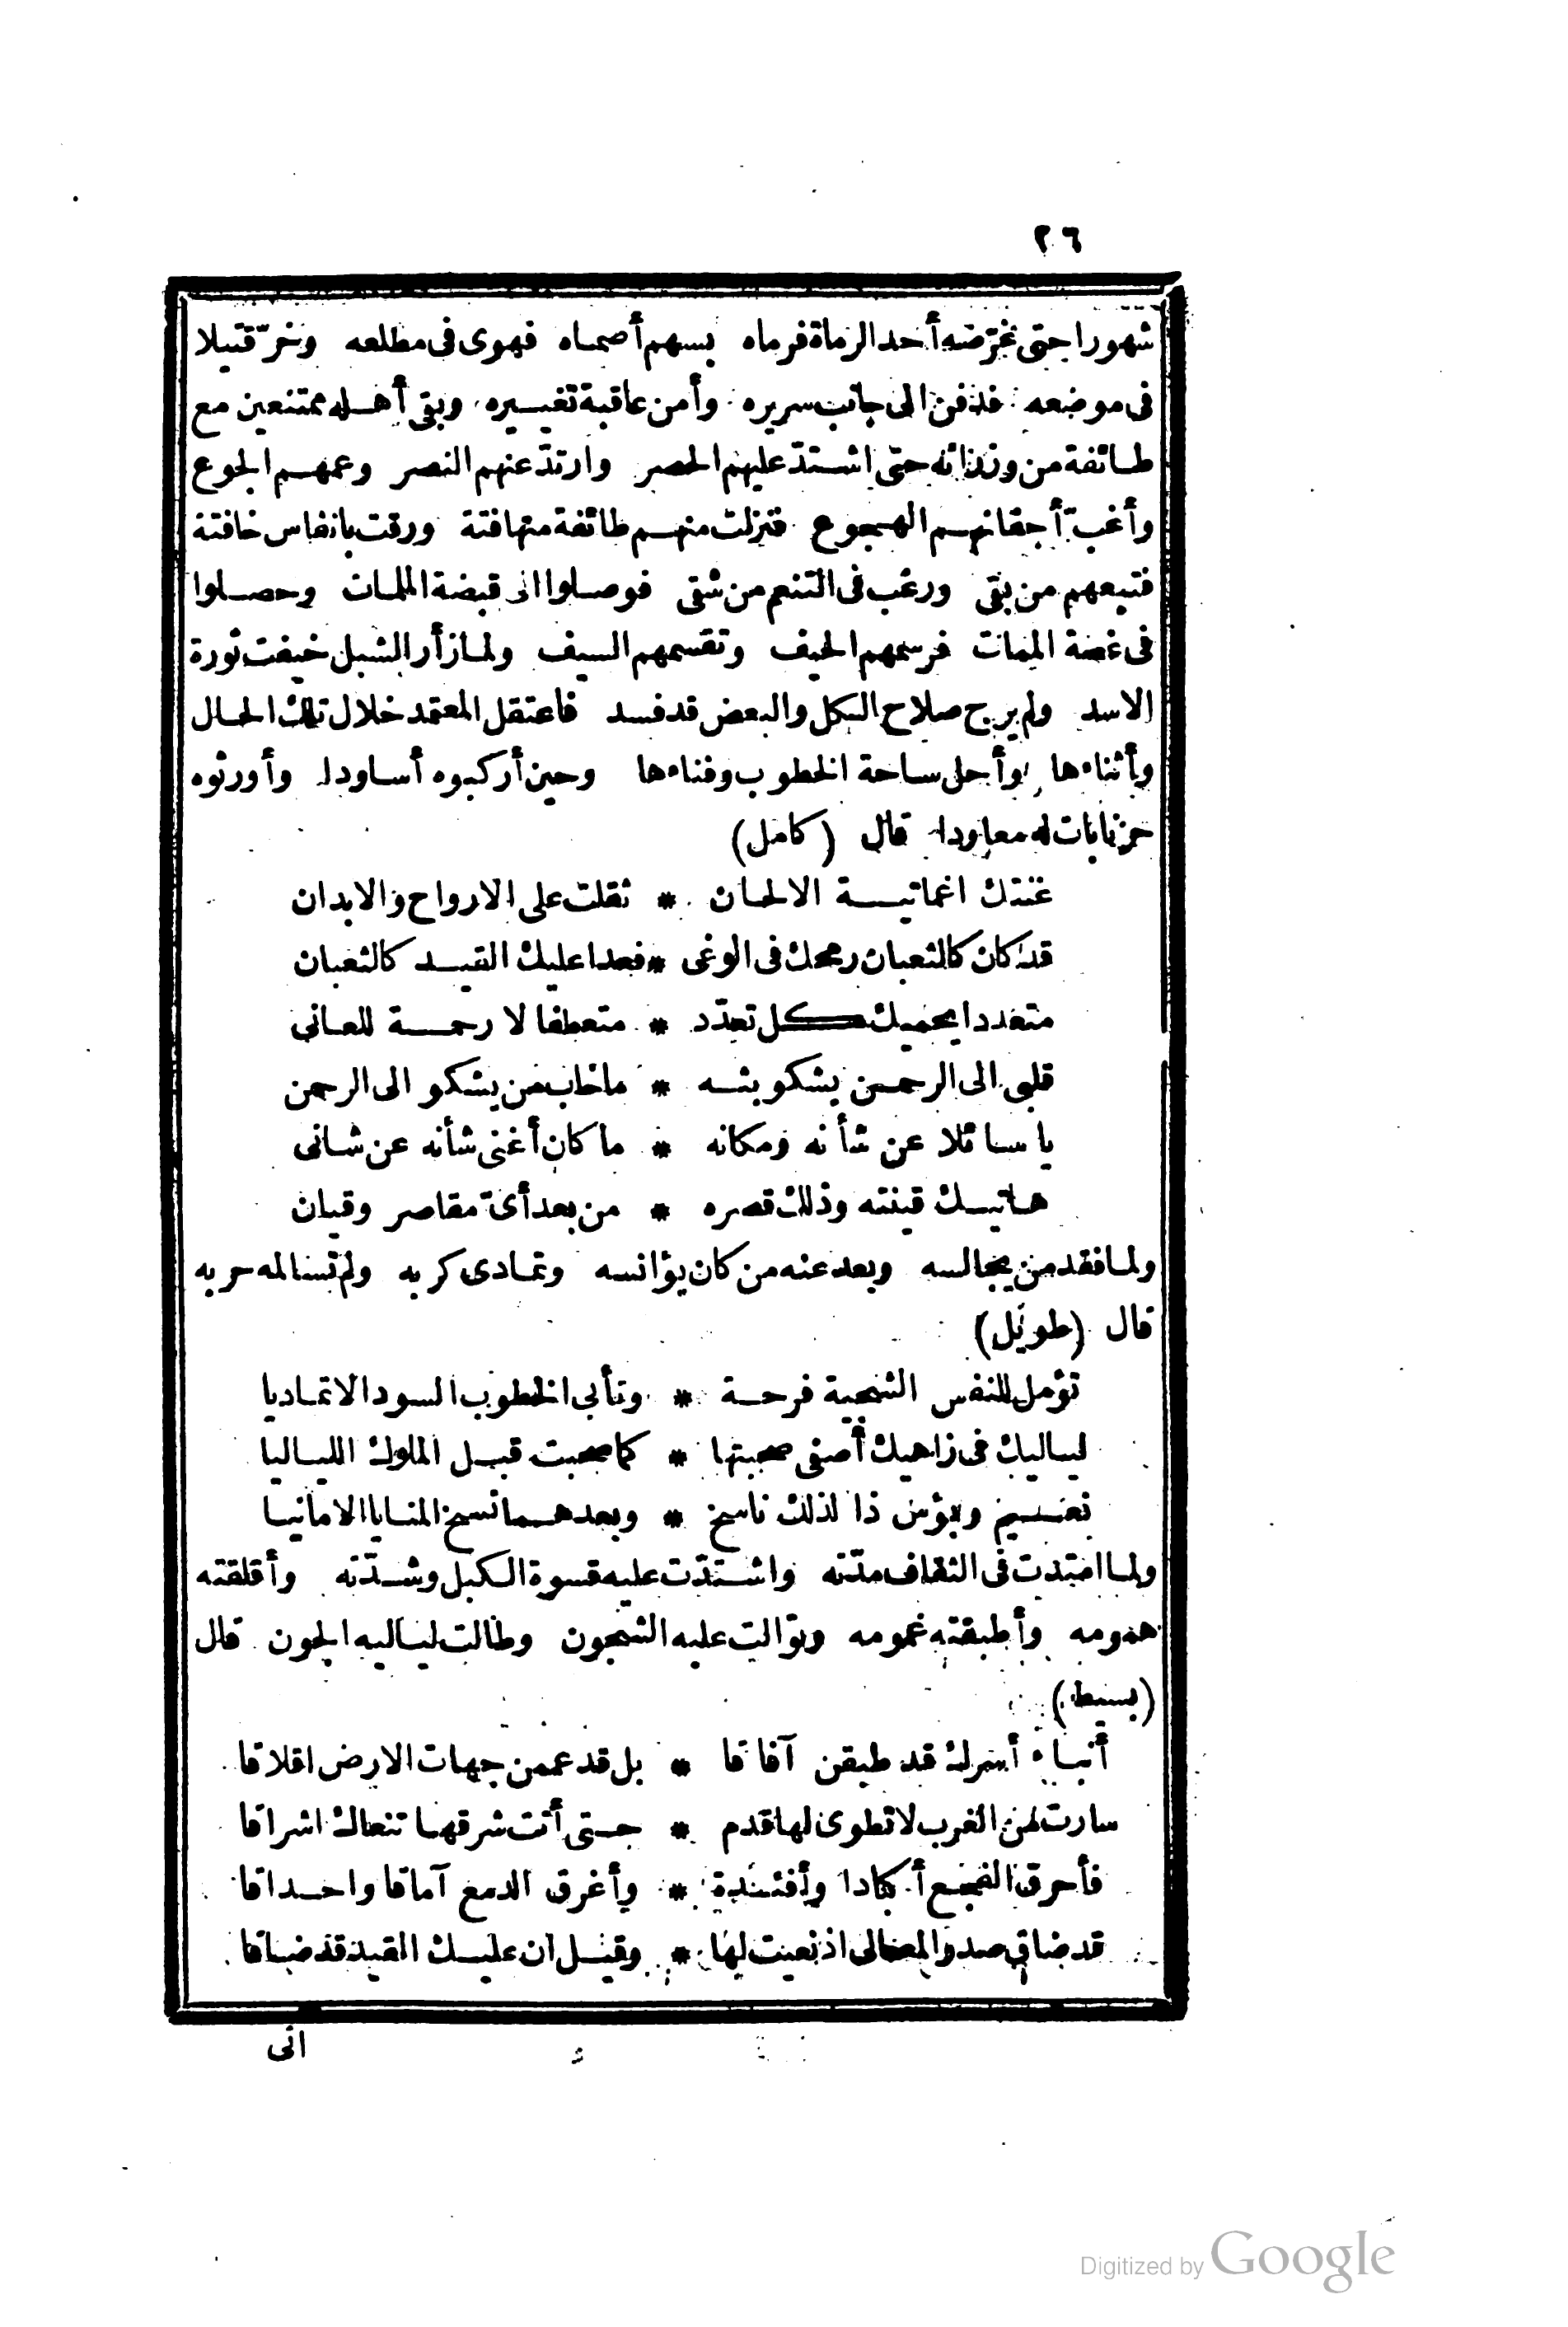 ٢٦
شهورا حتى تخرّصه أحد الرماة فرماه بسهم أصماه فهوى فى مطلعه وخرّ قتيلا
فى موضعه فدفن الى جانب سريره وأمن عاقبة تغييره وبقى أهله ممتنعين مع
طائفة من وزرائه حتى اشتدّ عليهم الحصر وارتدّ عنهم النصر وعمهم الجوع
وأغبّ أجفانهم الهجوع فنزلت منهم طائفة متهافتة ورقت بانفاس خافتة
فتبعهم من بقى ورغب فى التنعم من شقى فوصلوا الى قبضة الملمات وحصلوا
فى غصة الممات فرسمهم الحيف وتقسمهم السيف ولما زأر الشبل خيفت ثورة
الاسد ولم يرج صلاح الكل والبعض قد فسد فاعتقل المعتمد خلال تلك الحال
وأثناءها وأحل ساحة الخطوب وفناءها وحين أركبوه أساودا وأورثوه
حزنا بات له معاودا قال (كامل)
غنتك اغماتية الالحان * ثقلت على الارواح والابدان
قد كان كالثعبان رمحك فى الوغى * فعدا عليك القيد كالثعبان
متعددا يحميك كل تعدّد * متعطفا لا رحمة للعانى
قلبى الى الرحمن يشكو بثه * ما خاب من يشكو الى الرحمن
يا سائلا عن شأنه ومكانه * ما كان أغنى شأنه عن شانى
هاتيك قينته وذلك قصره * من بعد أىّ مقاصر وقيان
ولما فقد من يجالسه وبعد عنه من كان يؤانسه وتمادى كربه ولم تسالمه حربه
قال (طويل)
تؤمل للنفس الشجية فرحة * وتأبى الخطوب السود الا تماديا
لياليك فى زاهيك أصفى صحبتها * كما صحبت قبل الملوك اللياليا
نعيم وبؤس ذا لذلك ناسخ * وبعدهما نسخ المنايا الامانيا
ولما امتدّت فى الثقاف مدّته واشتدّت عليه قسوة الكبل وشدّته وأقلقته
همومه وأطبقته غمومه وتوالت عليه الشجون وطالت لياليه الجون قال
(بسيط)
أنباء أسرك قد طبقن آفاقا * بل قد عممن جهات الارض اقلاقا
سارت من الغرب لا تطوى لها قدم * حتى أتت شرقها تنعاك اشراقا
فأحرق الفجع أكبادا وأفئدة * وأغرق الدمع آماقا واحداقا
قد ضاق صدر المعالى اذ نعيت لها * وقيل ان عليك القيد قد ضاقا
انى
Digitized by Google